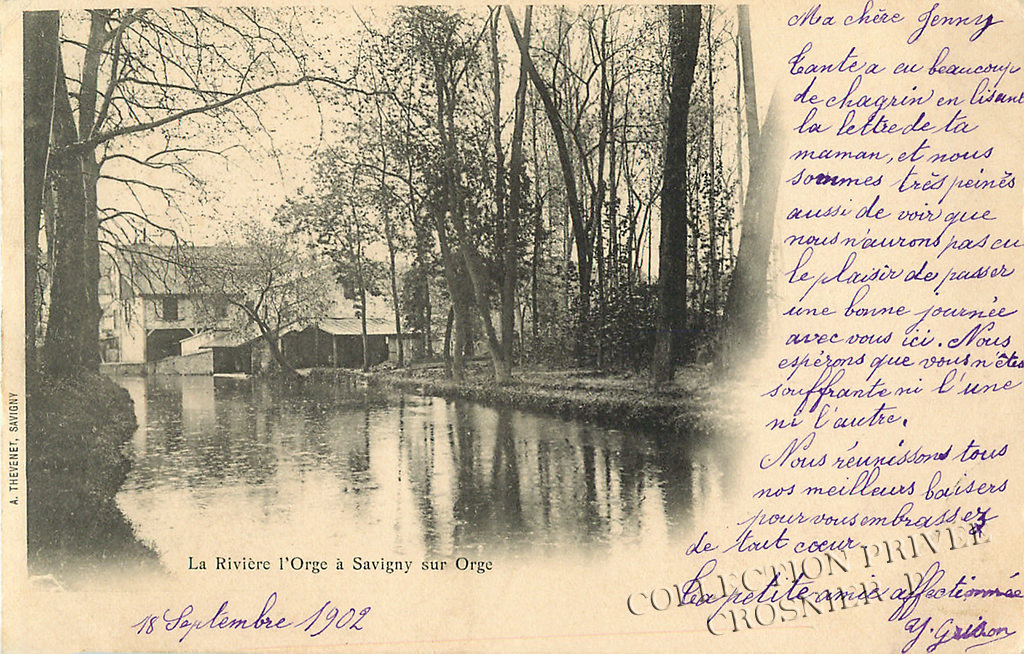 Ma chère Jenny
Tante a eu beaucoup
de chagrin en lisant
la lettre de ta
maman, et nous
sommes très peinés
aussi de voir que
nous n'aurons pas eu
le plaisir de passer
une bonne journée
avec vous ici. Nous
espérons que vous n'êtes
souffrante ni l'une
ni l'autre.
Nous réunissons tous
nos meilleurs baisers
pour vous embrasser
de tout cœur
Ta petite amie affectionnée
Y.
COLLECTION PRIVEE
CROSNIER P.
A. THEVENET, SAVIGNY
La Rivière l'Orge à Savigny sur Orge
18 Septembre 1902